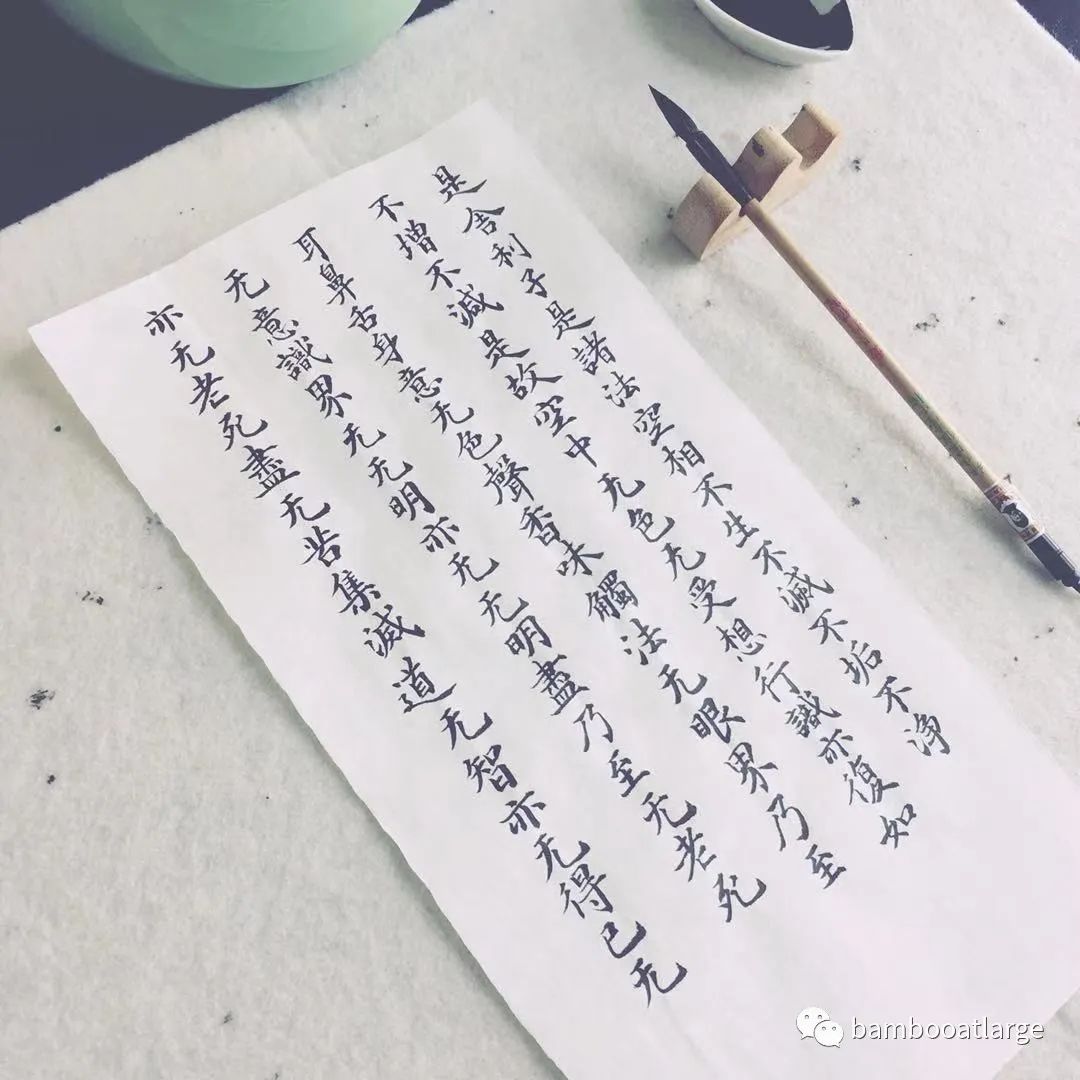 是舍利子是諸法空相不生不滅不垢不淨
不增不減是故空中无色无受想行識亦復如
耳鼻舌身意无色聲香味觸法无眼界乃至
无意識界无无明亦无无明盡乃至无老死
亦无老死盡无苦集滅道无智亦无得已无
bambooatlarge